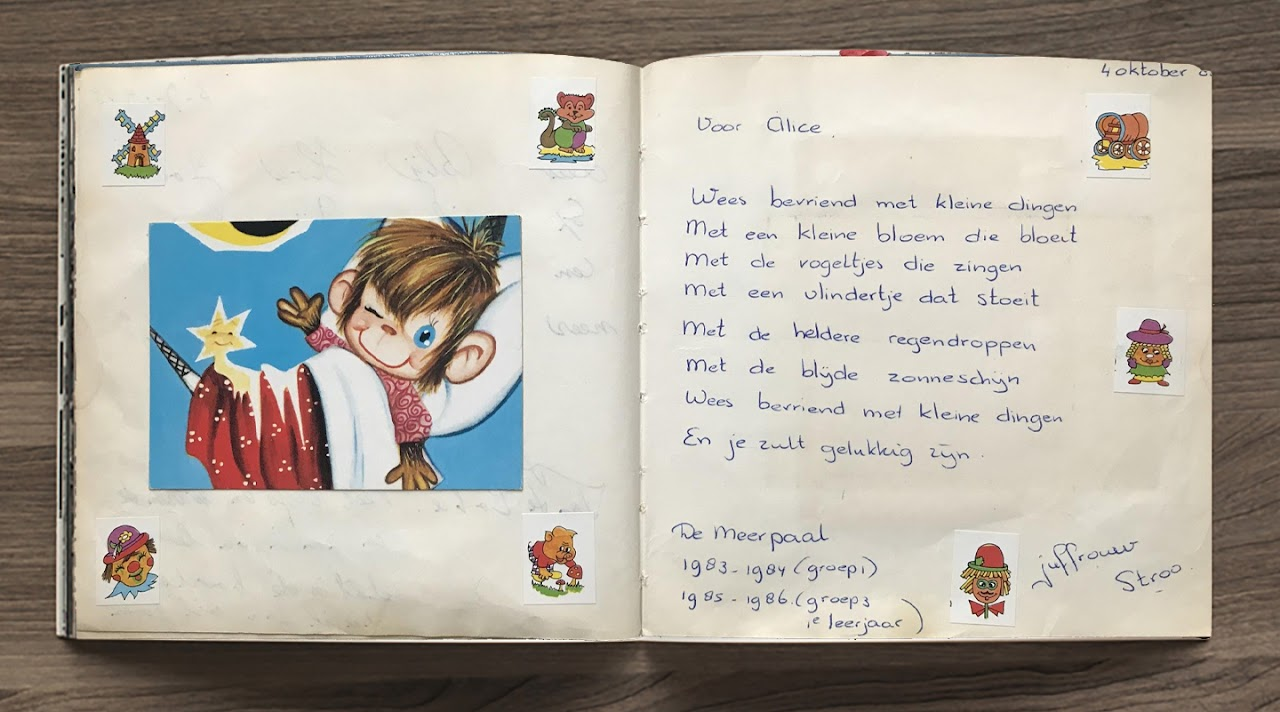 4 oktober
Voor Alice.
Wees bevriend met kleine dingen
Met een kleine bloem die bloeit
Met de vogeltjes die zingen
Met een vlindertje dat stoeit
Met de heldere regendroppen
Met de blijde zonneschijn
Wees bevriend met kleine dingen
En je zult gelukkig zijn.
De Meerpaal
1983-1984 (groep1)
1985-1986.(groep3
1e leerjaar)
juffrouw
Stroo.